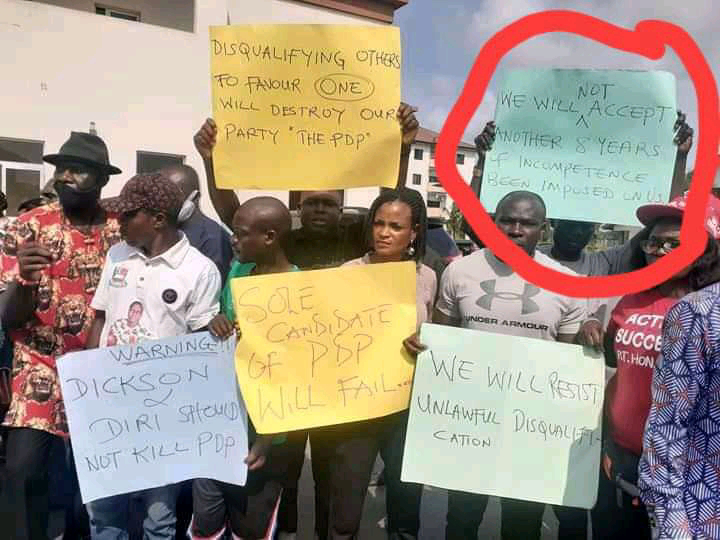 DISQUALIFYING OTHERS
TO FAVOUR ONE
WILL DESTROY OUR
PARTY "THE PDP"
NOT
WE WILL ^ ACCEPT
ANOTHER 8 YEARS
OF INCOMPETENCE
BEEN IMPOSED ON US
WARNING!!
DICKSON
&
DIRI SHOULD
NOT KILL PDP
SOLE
CANDIDATE
OF PDP
WILL FAIL...
WE WILL RESIST
UNLAWFUL DISQUALIFI-
CATION
UNDER ARMOUR
ACTI
SUCCE
RT. HON